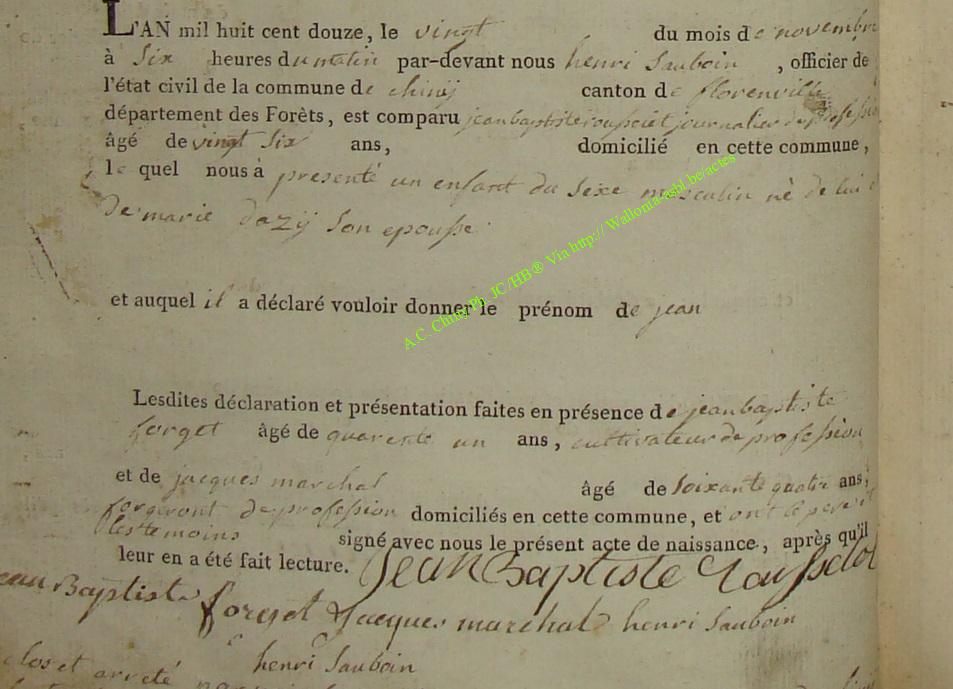 L'AN mil huit cent douze, le vingt du mois de novembre
à Six heures du matin par-devant nous henri Sauboin , officier de
l'état civil de la commune de chinij canton de florenville
département des Forêts, est comparu jean baptiste journalier de profession
âgé de vingt Six ans, domicilié en cette commune,
le quel nous à presenté un enfant du Sexe masculin né de lui
De marie dozij Son epousse
et auquel il a déclaré vouloir donner le prénom de jean
Lesdites déclaration et présentation faites en présence de jean baptiste
forget âgé de quarente un ans, cultivateur de profession
et de jacques marchal âgé de Soixante quatre ans,
forgeront de profession domiciliés en cette commune, et ont le pere et
les temoins signé avec nous le présent acte de naissance, après qu'il
leur en a été fait lecture. Jean Baptiste
ean Baptiste forget Jacques marchal henri Sauboin
henri Sauboin
clos et arreté
A.C. Chiny Ph. JC/HB ® Via http:// Wallonia-asbl.be/actes